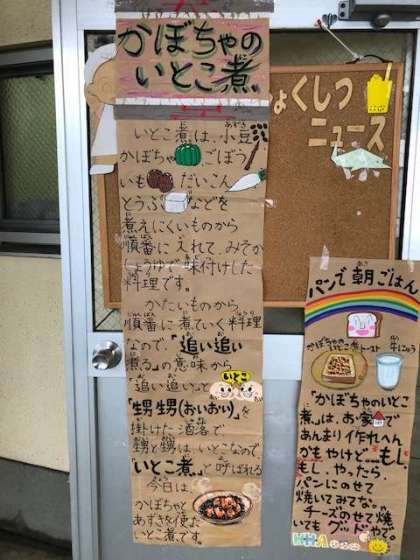 かぼちゃの
いとこ煮
ょくしつ
ニュース
いとこ煮は、小豆
かぼちゃ ごぼう
いも だいこん
とうふ などを
煮えにくいものから
順番に入れて、みそか
しょうゆで味付けした
料理です。
かたいものから
順番に煮ていく料理
なので、「追い追い
煮る」の意味から
いとこ
「追い追い」と
「甥甥(おいおい)」を
掛けた洒落で
甥と甥はいとこなので、
「いとこ煮」と呼ばれる
今日は
かぼちゃと
あずきを使た
いとこ煮です。
パンで朝ごはん
かぼちゃのいとこ煮トースト
牛にゅう
「かぼちゃのいとこ
煮」は、お家で
あんまり作れへん
かもやけど…もし
もし、やったら、
パンにのせて
焼いてみてな。
チーズのせて焼
いてもグッドやで。